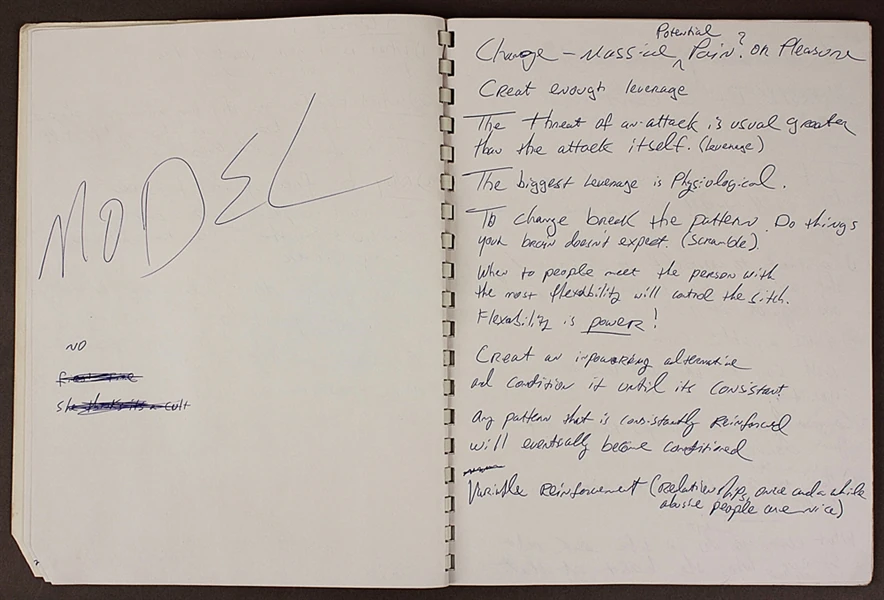 MODEL
NO
She thinks its a cult
Change - Massical Potential Pain? or Pleasure
Creat enough leverage
The threat of an attack is usual greater
than the attack itself. (leverage)
The biggest leverage is Physiological.
To change break the pattern. Do things
your brain doesn't expect. (Scramble).
When to people meet the person with
the most flexability will control the sitch.
Flexability is power!
Creat an inpowering alternative
and condition it until its consistant.
Any pattern that is consistantly Reinforced
will eventually become conditioned
Variable Reinforcement (Relationships, once and a while
abusive people are nice)